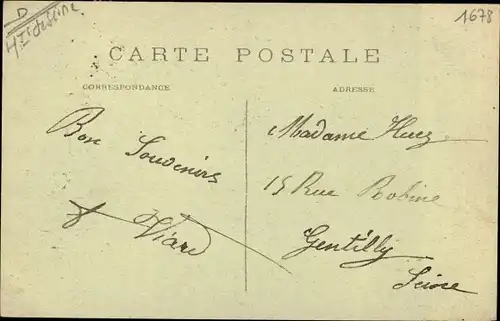 D
1678
CARTE POSTALE
CORRESPONDANCE
ADRESSE
Bon
Souvenirs
Viard
Madame
15 Rue Bobine
Gentilly
Seine